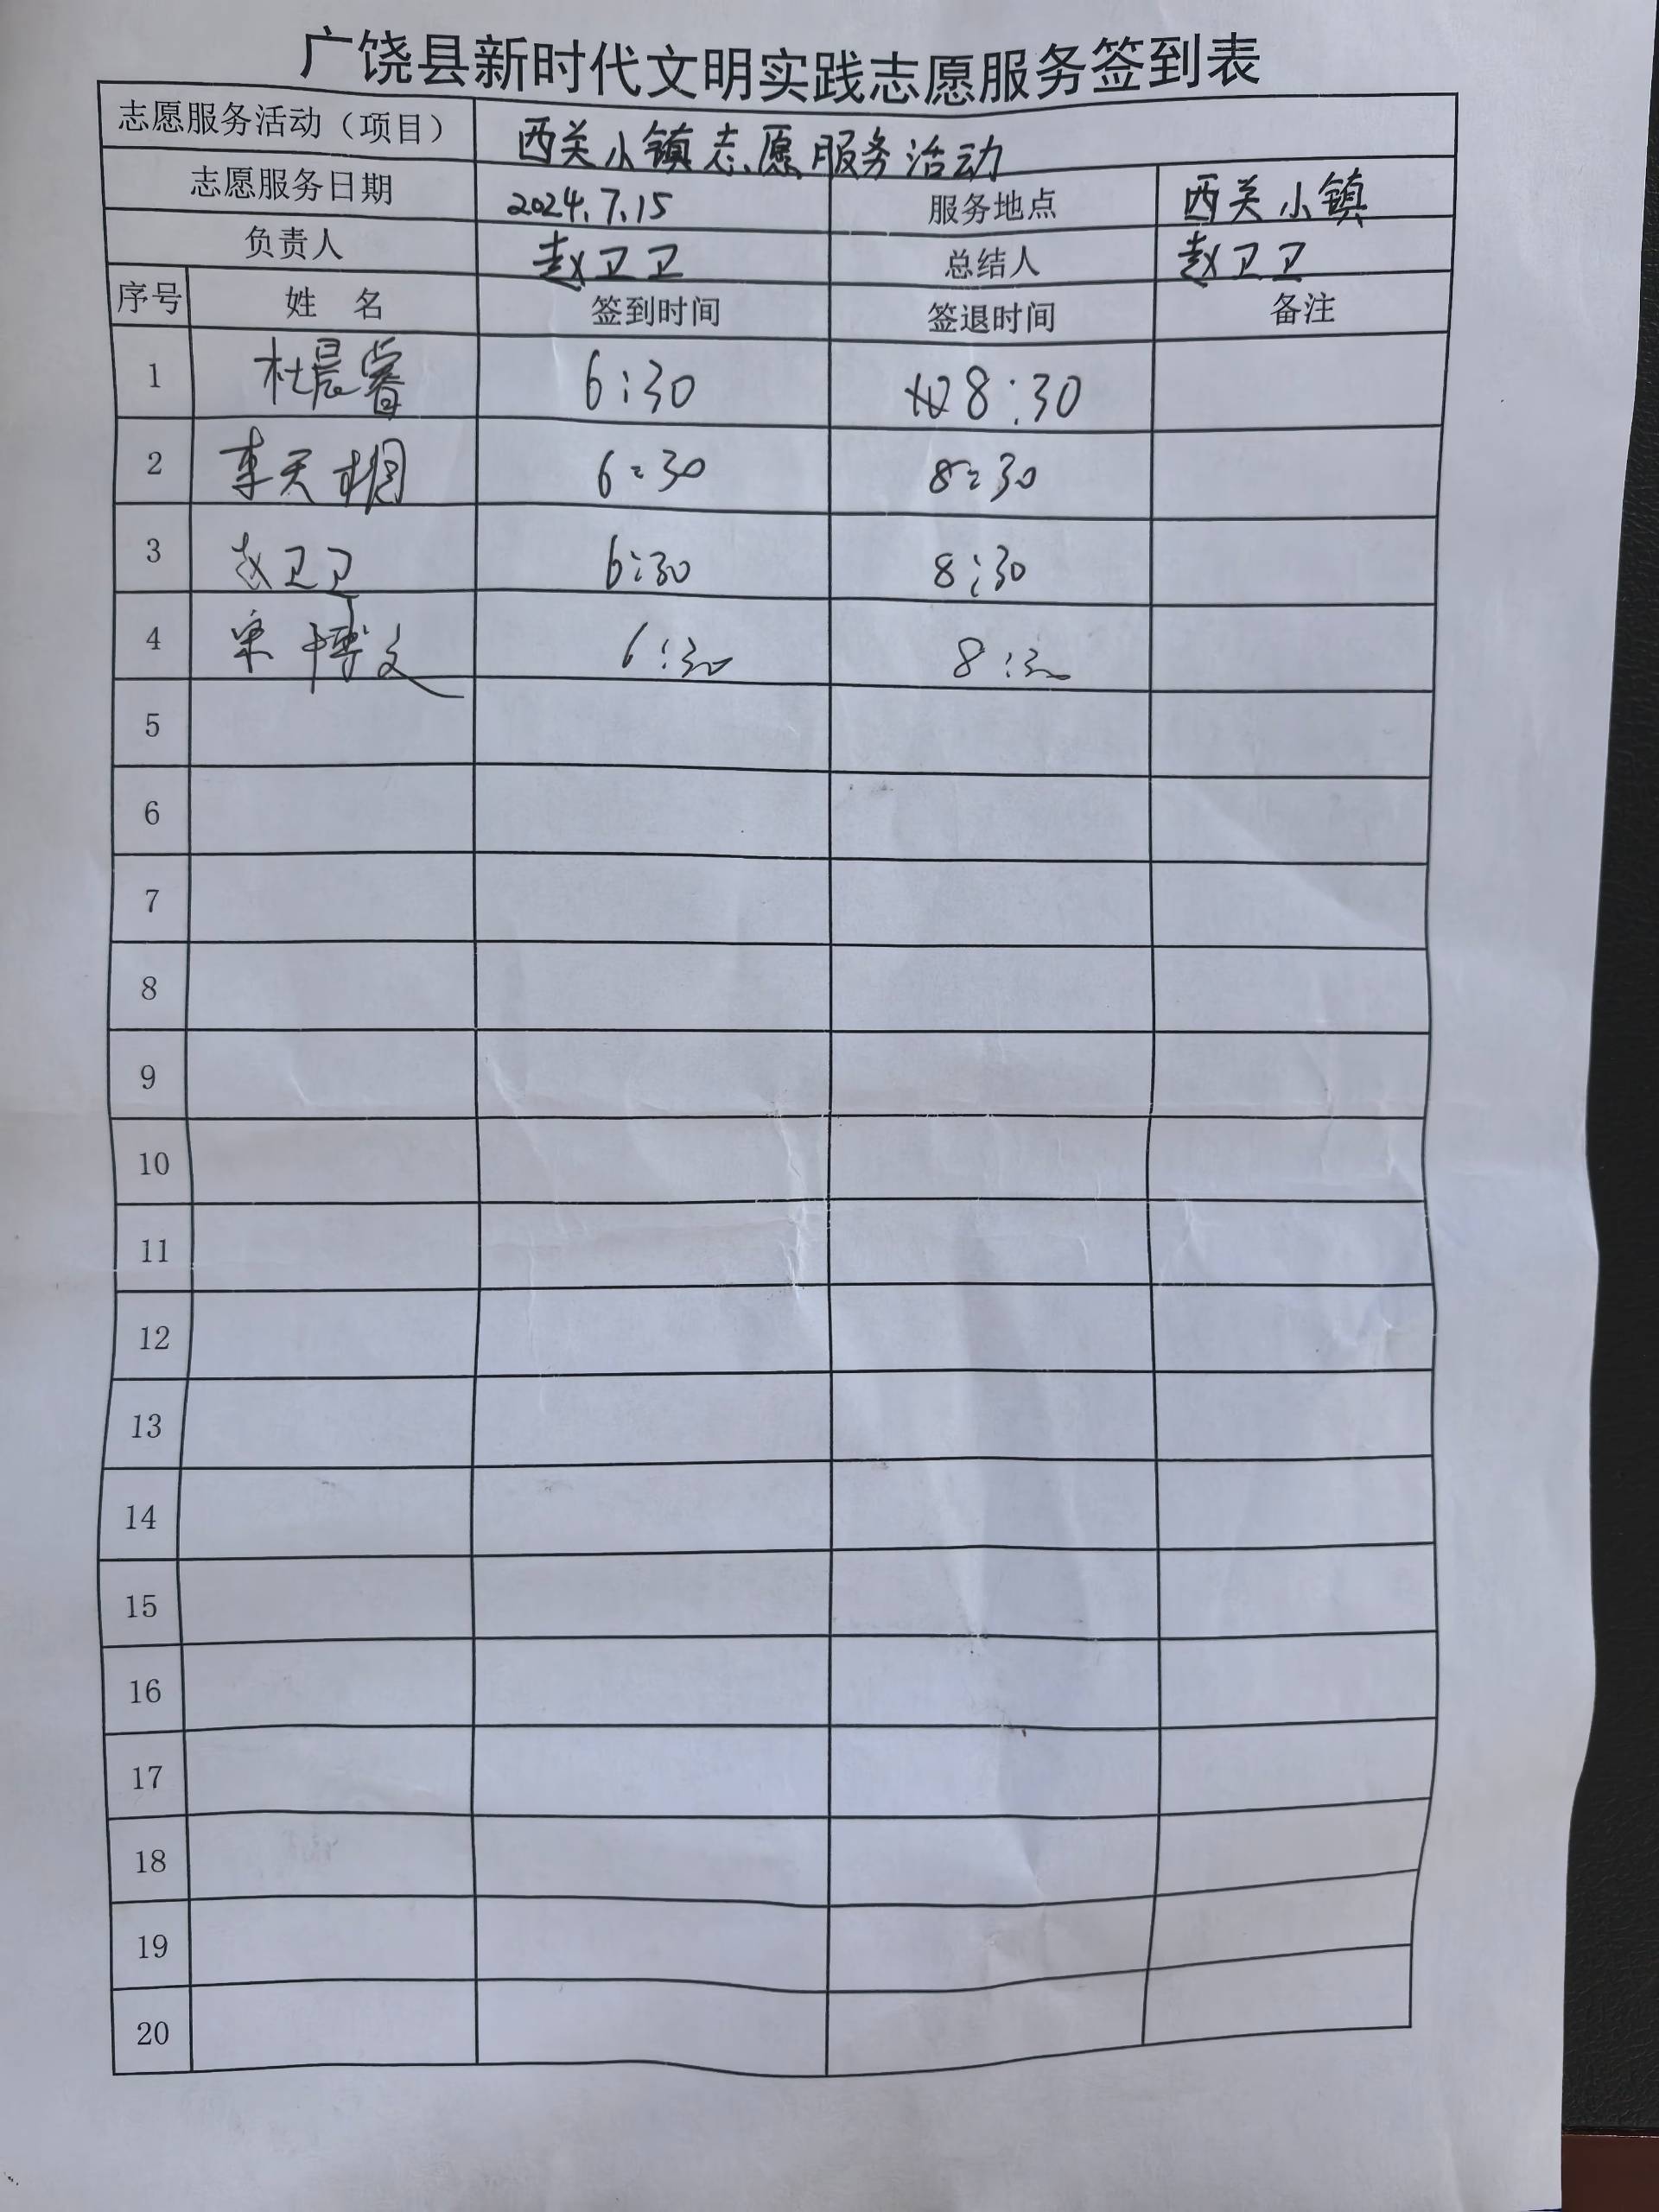 广饶县新时代文明实践志愿服务签到表
志愿服务活动（项目） 西关小镇志愿服务活动
志愿服务日期 2024.7.15 服务地点 西关小镇
负责人 赵卫卫 总结人 赵卫卫
序号 姓 名 签到时间 签退时间 备注
1 杜晨睿 6:30 8:30
2 李天桐 6:30 8:30
3 赵卫卫 6:30 8:30
4 宋博文 6:30 8:30
5
6
7
8
9
10
11
12
13
14
15
16
17
18
19
20